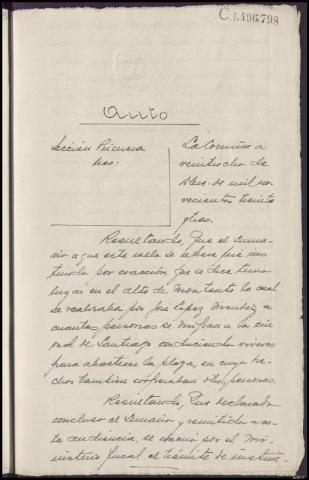 C.1.496.798
Auto
Sección Primera
Sres:
La Coruña a
veintiocho de
Dbre. de mil no-
vecientos treinta
y tres.
Resultando, Que el suma-
rio a que este rollo se refiere fue ins-
truido por coacción que se dice tuvo
lugar en el alto de Montouto la cual
se realizaba por José Lopez Mendez a
cuantas personas se dirijian a la ciu-
dad de Santiago conduciendo víveres
para abastecer la plaza, en cuyos he-
chos tambien cooperaban otras personas.
Resultando, Que declarado
concluso el sumario y remitido a es-
ta Audiencia, se evacuó por el Mi-
nisterio fiscal el trámite de instruc-